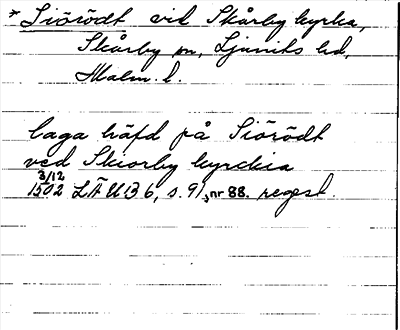 * Siörödt vid Skårby kyrka,
Skårby sn, Ljunits hd,
Malm. l.
laga häfd på Siörödt
ved Skiorby kyrckia
3/12
1502 LÄU 13 6, s. 91, nr 88. regest.